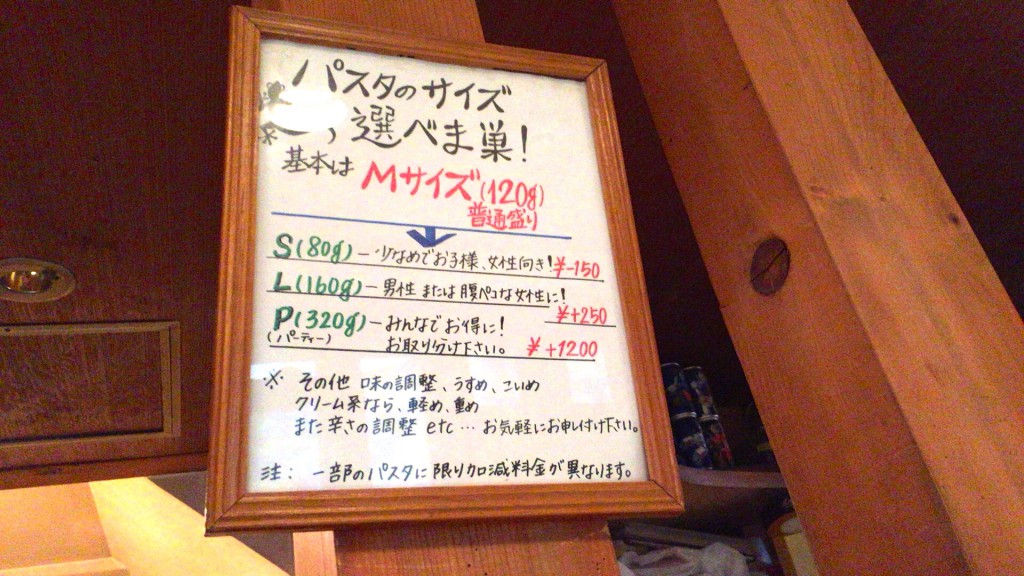 パスタのサイズ
選べま巣!
基本は Mサイズ(120g)
普通盛り
S(80g)ー少なめでお子様、女性向き!¥-150
L(160g)ー男性または腹ペコな女性に!
¥+250
P(320g)ーみんなでお得に!
(パーティー) お取り分け下さい。 ¥+1200
※ その他 味の調整、うすめ、こいめ
クリーム系なら、軽め、重め
また辛さの調整 etc… お気軽にお申し付け下さい。
注: 一部のパスタに限り加減料金が異なります。